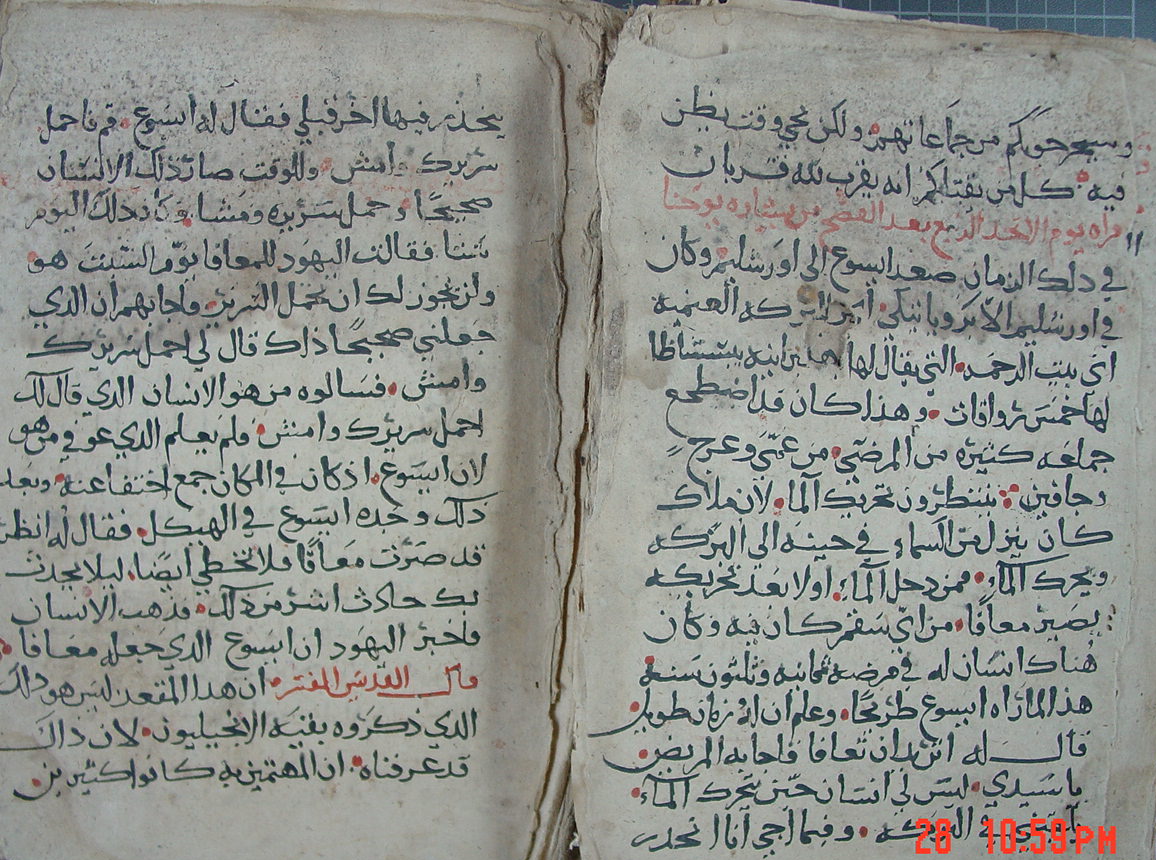 وسيخرجوكم من جماعاتهم ولكن تجي وقت يظن
فيه كل من يقتلكم انه يقرب لله قربان
قراه يوم الاحد الرابع بعد الفصح من بشاره يوحنا
في دلك الزمان صعد ايسوع الي اورشليم وكان
في اورشليم الابروباتيكي البركه الغنميه
اي بيت الرحمه التي يقال لها
لها خمس رواقات وهذا كان قد اضطجع
جماعه كثيره من المرضي من عمي وعرج
وجافين ينتظرون تحريك الما لان ملاك
كان ينزل من السماء في حينه الي البركه
ويحرك الماء فمن دخل الماء اولا بعد تحريكه
يصير معافا من اي سقم كان به وكان
هناك انسان له في مرضه ثمانيه وثلثون سنه
هذا لما راه ايسوع طريحا وعلم ان له زمان طويل
قال له اتريد ان تعافا فاجابه المريض
يا سيدي ليس لي انسان حين يتحرك الماء
يلقيني في البركه وفيما اجي انا انحدر
فيها اخر قبلي فقال له ايسوع قم فاحمل
سريرك وامش وللوقت صار ذلك الانسان
صحيحا وحمل سريره ومشا وكان ذلك اليوم
سبتا فقالت اليهود للمعافا يوم السبت هو
ولن يجوز لك ان تحمل السرير فاجابهم ان الدي
جعلني صحيحا ذاك قال لي احمل سريرك
وامش فسالوه من هو الانسان الدي قال لك
احمل سريرك وامش فلم يعلم الدي عوفي من هو
لان ايسوع اذ كان في المكان جمع اختفا عنه وبعد
ذلك وجده ايسوع في الهيكل فقال له انظر
قد صرت معافا فلا تخطي ايضا ليلا يحدث
بك حادث اشر من ذلك فدهب الانسان
واخبر اليهود ان ايسوع الدي جعله معافا
قال القديس المفسر ان هدا المقعد ليس هو داك
الدي ذكروه بقيه الانجيليون لان ذاك
قد عرفناه ان المهتمين به كانوا كثيرين
28 10:59PM